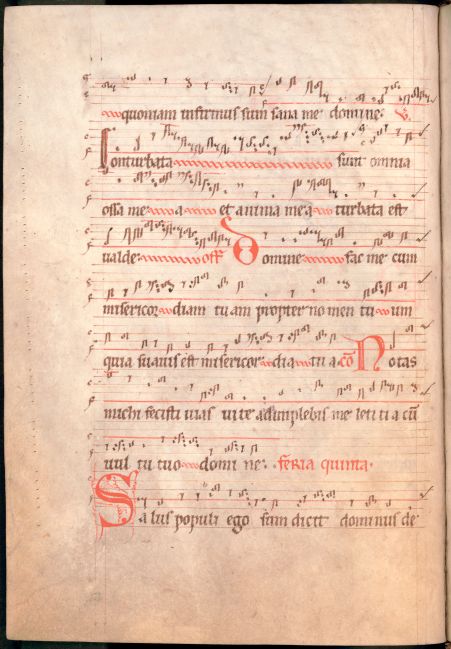 quoniam infirmus sum sana me domine. V.
Conturbata sunt omnia
ossa mea et anima mea turbata est
ualde off Domine fac me cum
misericordiam tuam propter nomen tuum
quia suauis est misericordia tua cō Notas
michi fecisti uias uite adimplebis me letitia cū
uul tu tuo domine. feria quinta.
Salus populi ego sum dicit dominus de